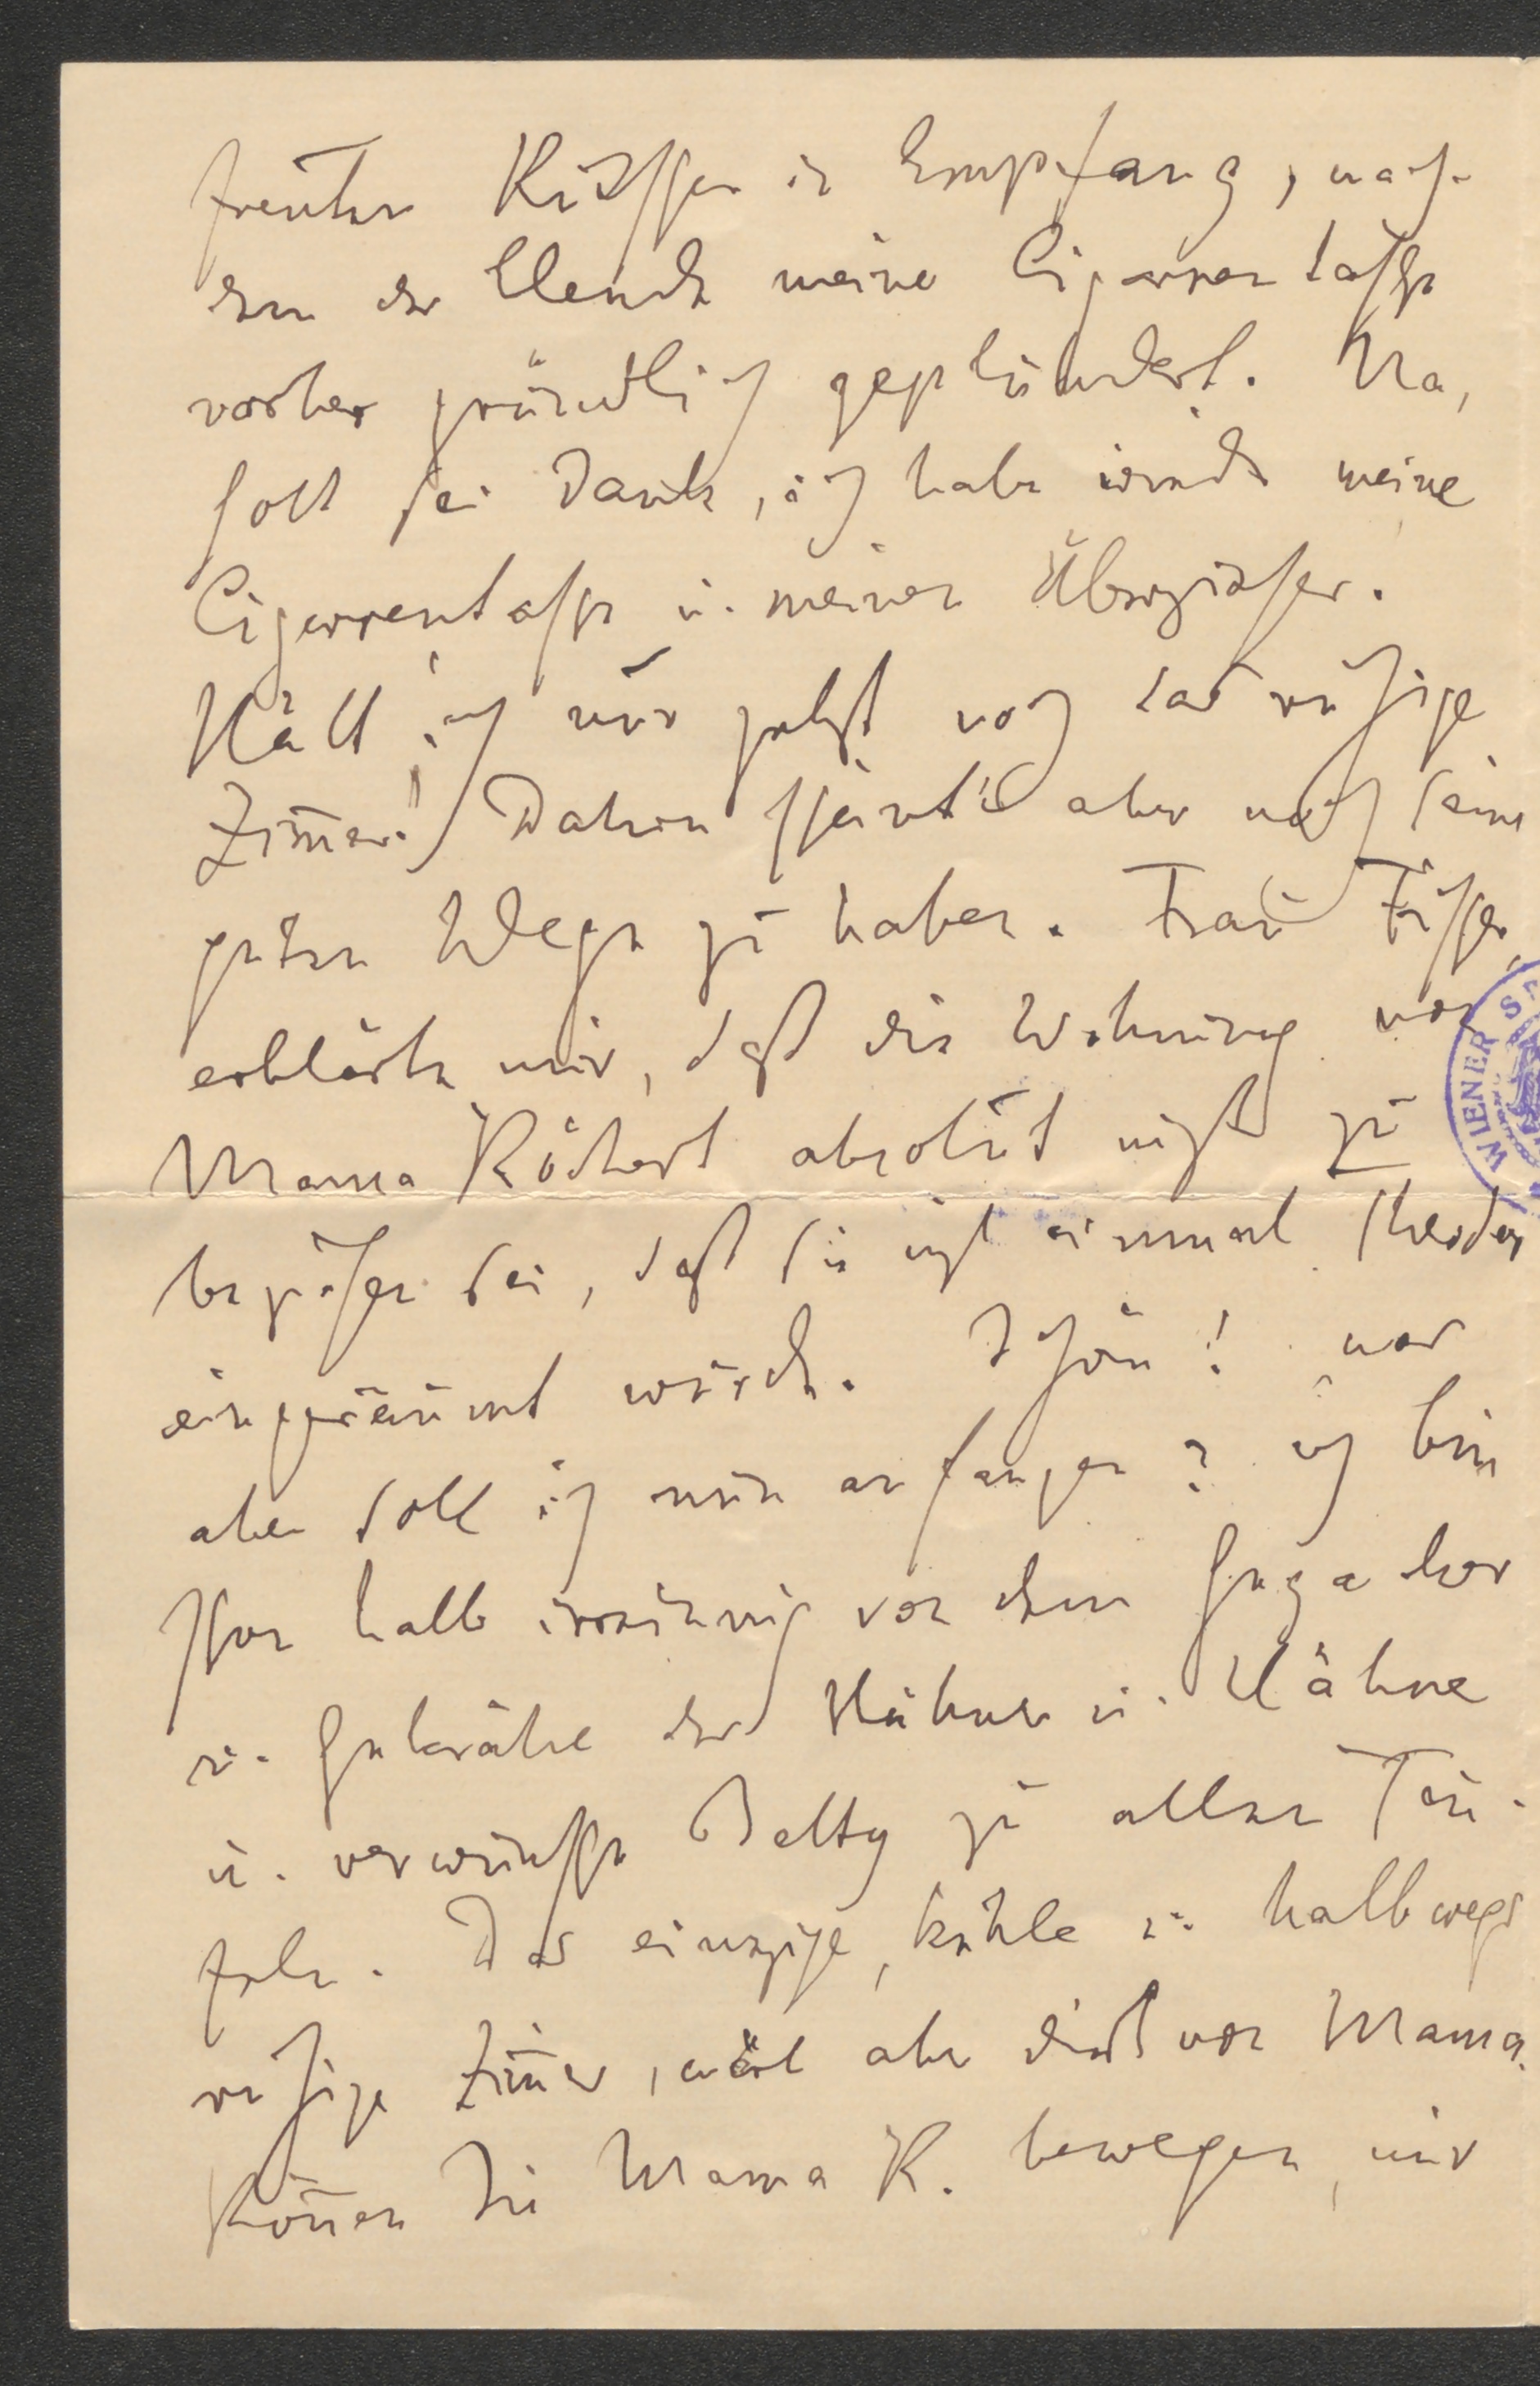 freuten Kutscher in Empfang, nach-
dem der Elende meine Cigarrentasche
vorher gründlich geplündert. Na,
Gott sei Dank, ich habe wieder meine
Cigarrentasche u. meinen Überzieher.
Hätt' ich nur selbst noch das ruhige
Zimmer! Damit scheint's aber noch seine
guten Wege zu haben. Frau Fischer
erklärte mir, daß die Wohnung von
Mama Köchert absolut nicht zu
beziehen sei, daß sie nicht einmal
eingeräumt würde. Schön! was
aber soll ich nun anfangen? ich bin
schon halb irrsinnig von dem Gegacker
u. Gekrähe der Hühner u. Hähne
u. verwünsche Betty zu allen Teu-
feln. Das einzige, kühle u. halbwegs
ruhige Zimmer, wär aber dort von Mama.
Können Sie Mama K. bewegen, mir
WIENER